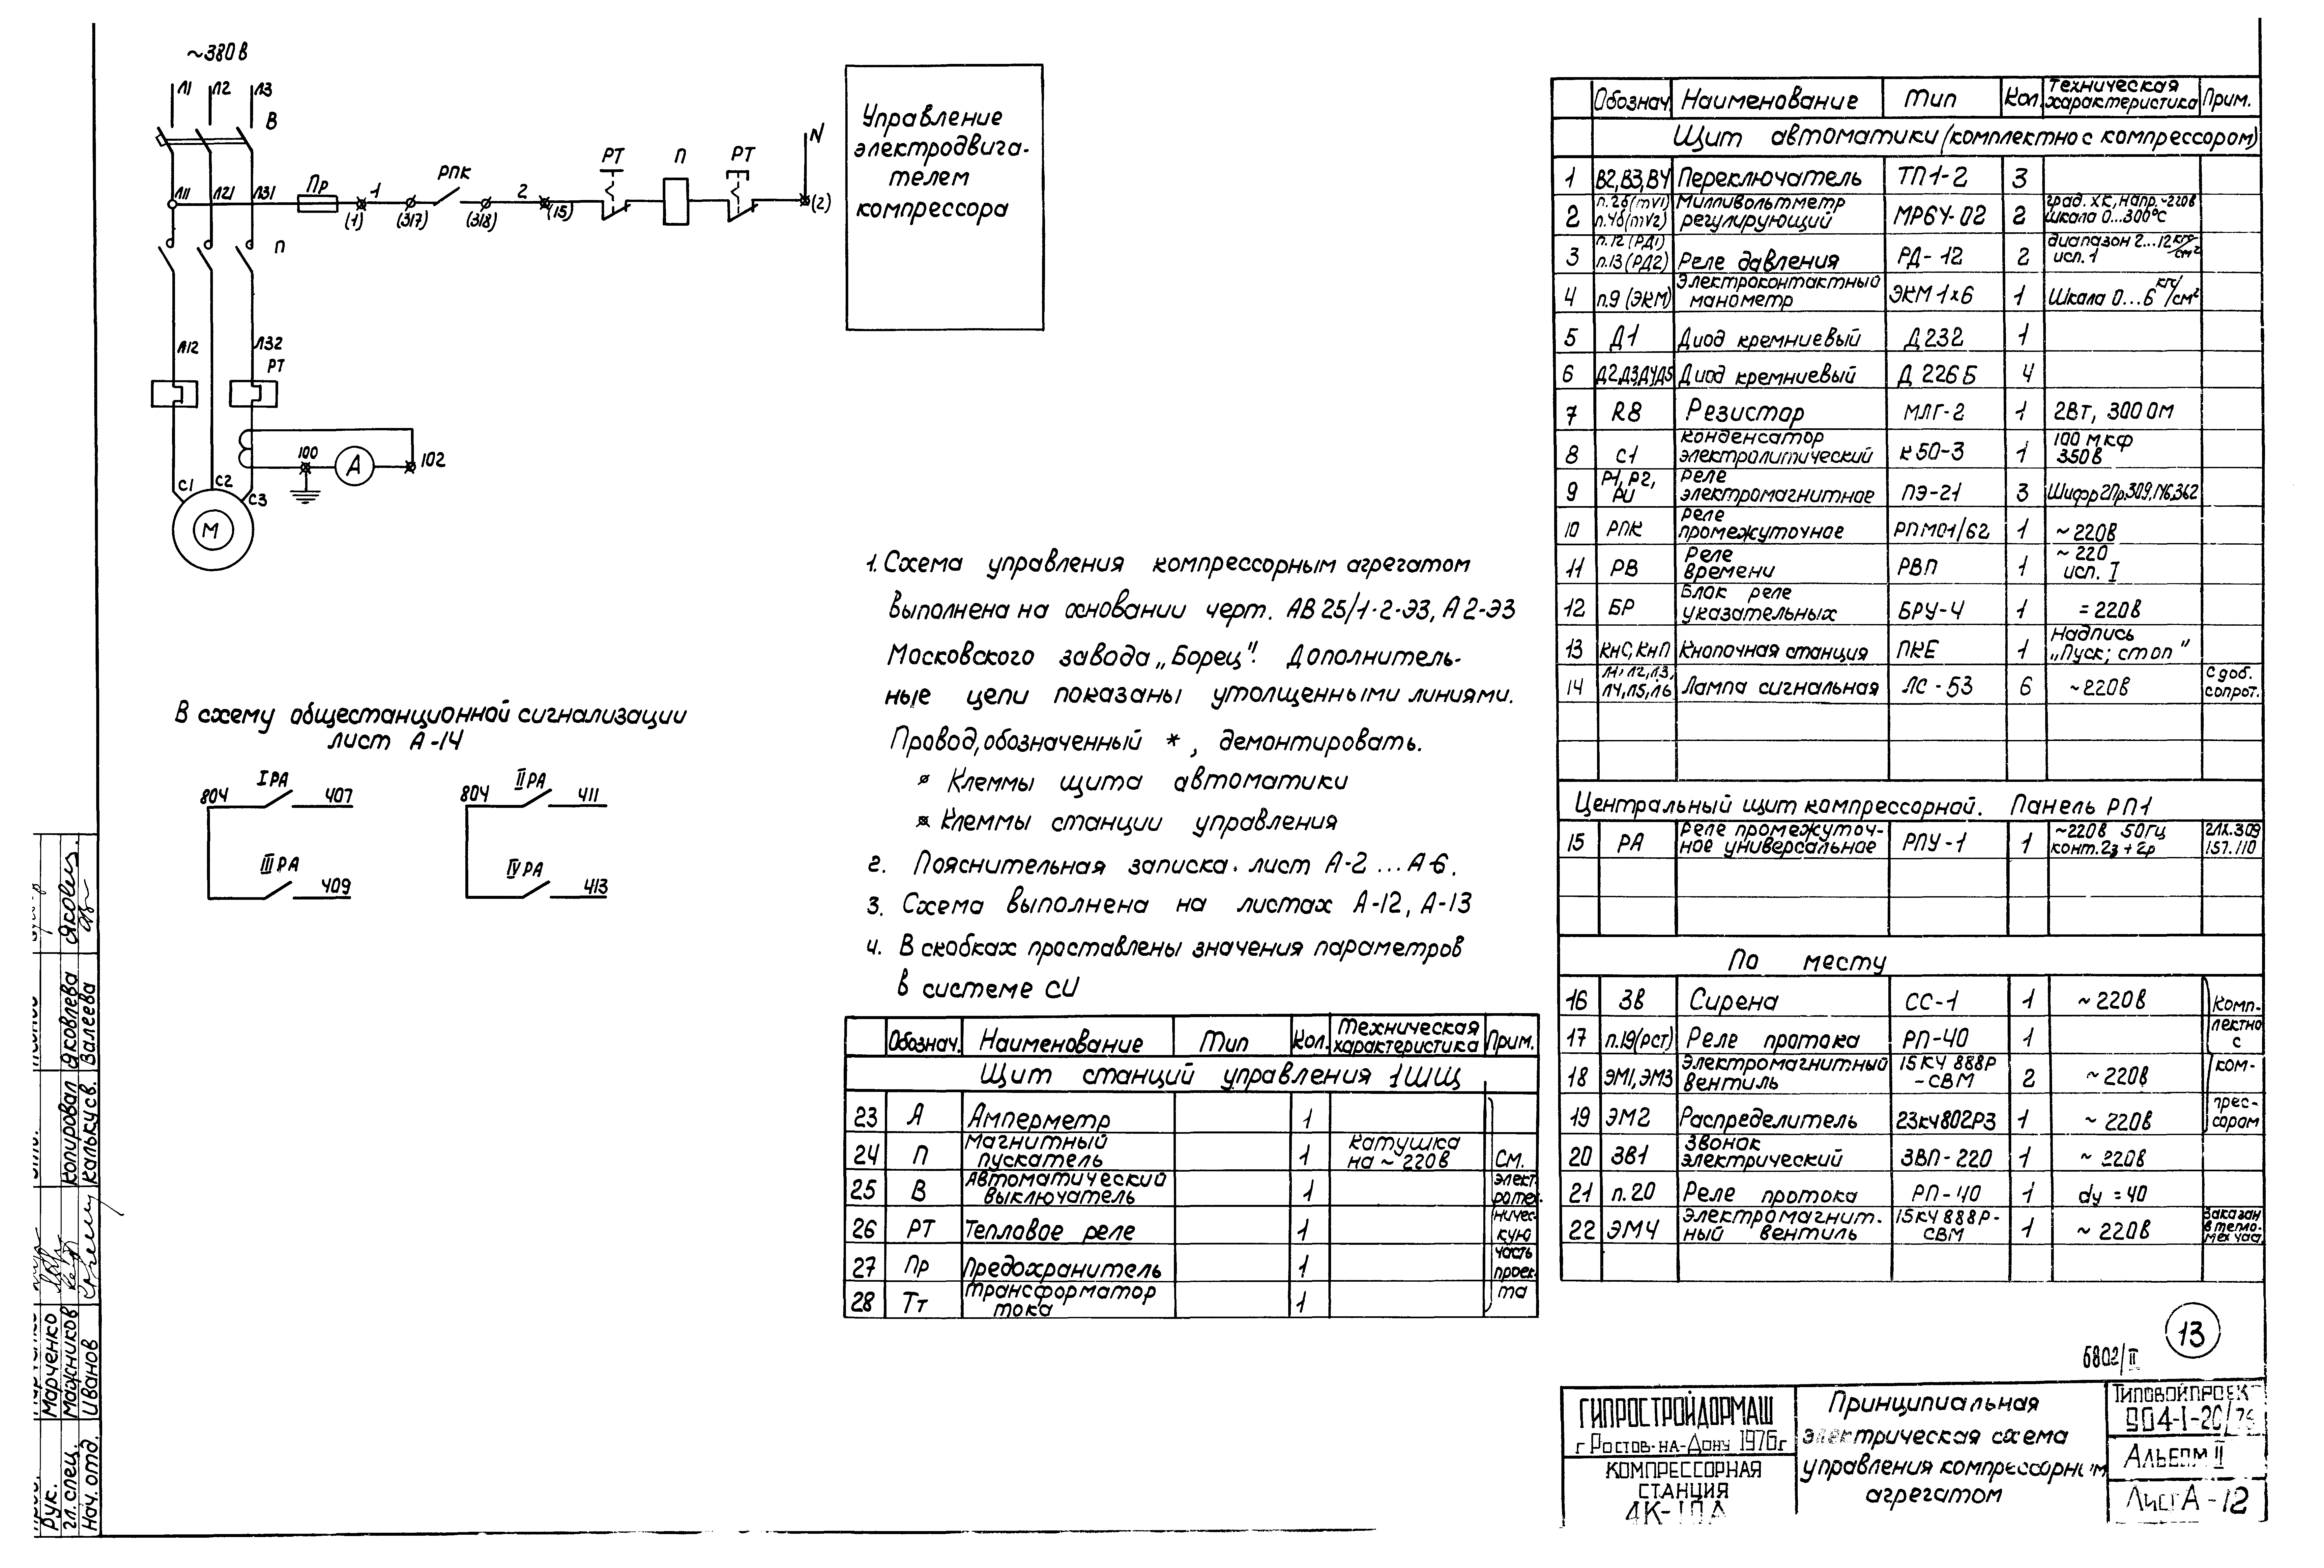 ~380в
Л1 Л2 Л3
В
Л11 Л21 Л31 Пр 1 РПК 2 РТ П РТ N
(1) (317) (318) (15) (2)
П
Л12 Л32
РТ
100 А 102
С1 С2 С3
М
Управление
электродвига-
телем
компрессора
В схему общестанционной сигнализации
лист А-14
804 I РА 407
804 II РА 411
III РА 409
IV РА 413
1. Схема управления компрессорным агрегатом
выполнена на основании черт. АВ 25/1-2-ЭЗ, А 2-ЭЗ
Московского завода „Борец". Дополнитель-
ные цепи показаны утолщенными линиями.
Провод, обозначенный *, демонтировать.
Клеммы щита автоматики
Клеммы станции управления
2. Пояснительная записка. лист А-2 ... А-6.
3. Схема выполнена на листах А-12, А-13
4. В скобках проставлены значения параметров
в системе СИ
Обознач. Наименование Тип Кол. Техническая характеристика Прим.
Щит станций управления 1ШЩ
23 А Амперметр 1
24 П Магнитный пускатель 1 катушка на ~220в
25 В Автоматический выключатель 1
26 РТ Тепловое реле 1
27 Пр Предохранитель 1
28 Тт трансформатор тока 1
См.
элект-
ротех-
ничес-
кую
часть
проек-
та
Обознач. Наименование Тип Кол. Техническая характеристика Прим.
Щит автоматики (комплектно с компрессором)
1 В2, В3, В4 Переключатель ТП1-2 3
2 п.2б(mV1) п.4б(mV2) Милливольтметр регулирующий МР64-02 2 град. ХК, напр.~220в шкала 0...300°С
3 п.12 (РД1) п.13 (РД2) Реле давления РД-12 2 диапазон 2...12 кгс/см² исп. 1
4 п.9 (ЭКМ) Электроконтактный манометр ЭКМ 1х6 1 Шкала 0...6 кгс/см²
5 Д1 Диод кремниевый Д 232 1
6 Д2,Д3,Д4,Д5 Диод кремниевый Д 226 Б 4
7 R8 Резистор МЛГ-2 1 2Вт, 300 Ом
8 С1 конденсатор электролитический К 50-3 1 100 мкф 350в
9 Р1, Р2, РИ реле электромагнитное ПЭ-21 3 Шифр 2Пр.309,146,362
10 РПК реле промежуточное РПМ01/62 1 ~220в
11 РВ Реле времени РВП 1 ~220 исп. I
12 БР Блок реле указательных БРУ-4 1 =220в
13 КнС, КнП Кнопочная станция ПКЕ 1 Надпись „Пуск; стоп"
14 Л1, Л2, Л3, Л4, Л5, Л6 Лампа сигнальная ЛС-53 6 ~220в С доб. сопрот.
Центральный щит компрессорной. Панель РП1
15 РА Реле промежуточ-ное универсальное РПУ-1 1 ~220в 50Гц конт. 2з + 2р 2ЛХ.309 157.110
По месту
16 Зв Сирена СС-1 1 ~220в
17 п.19(рст) Реле протока РП-40 1
18 ЭМ1, ЭМ3 Электромагнитный вентиль 15КЧ 888Р -СВМ 2 ~220в
19 ЭМ2 Распределитель 23кч802Р3 1 ~220в
Комп-
лектно
с
ком-
прес-
сором
20 ЗВ1 Звонок электрический ЗВП-220 1 ~220в
21 п.20 Реле протока РП-40 1 dу = 40
22 ЭМ4 Электромагнит-ный вентиль 15КЧ 888Р-СВМ 1 ~220в Заказан в тепло-мех час.
13
6802/II
ГИПРОСТРОЙДОРМАШ
г Ростов-на-Дону 1976г
КОМПРЕССОРНАЯ
СТАНЦИЯ
4К-10А
Принципиальная
электрическая схема
управления компрессорным
агрегатом
Типовой проект
904-1-20/76
Альбом II
Лист А-12
Рук. Марченко
гл. спец. Мажников Копировал Яковлева
Нач. отд. Иванов Калькусв. Валеева